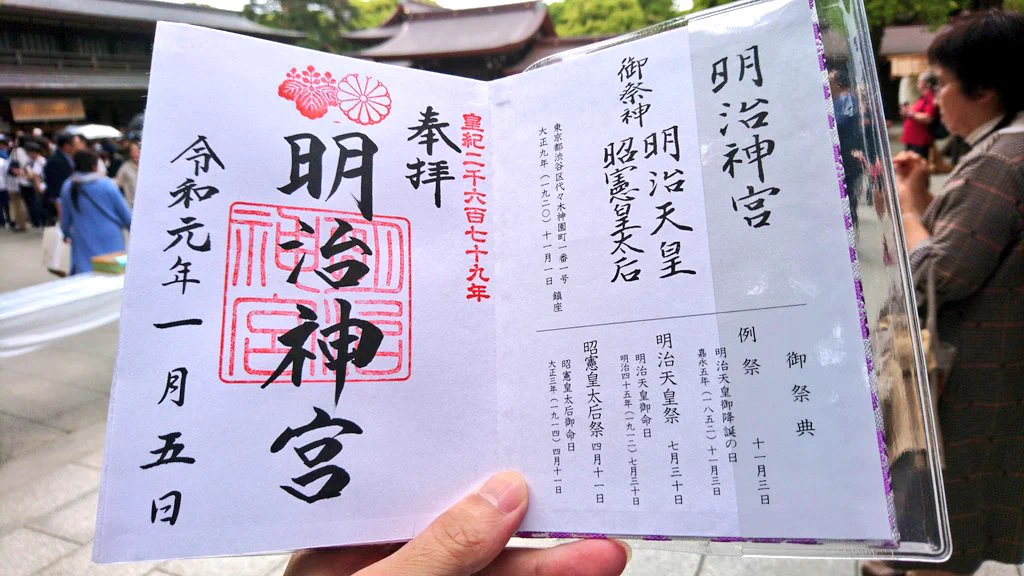 明治神宮
御祭神 明治天皇
昭憲皇太后
東京都渋谷区代々木神園町一番一号
大正九年（一九二〇）十一月一日 鎮座
御祭典
例祭 十一月三日
明治天皇御降誕の日
嘉永五年（一八五二）十一月三日
明治天皇祭 七月三十日
明治天皇御命日
明治四十五年（一九一二）七月三十日
昭憲皇太后祭 四月十一日
昭憲皇太后御命日
大正三年（一九一四）四月十一日
皇紀二千六百七十九年
奉拝
明治神宮
明治
神宮
令和元年一月五日